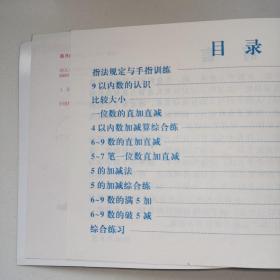 目 录
指法规定与手指训练
9以内数的认识
比较大小
一位数的直加直减
4以内数加减算综合练
6~9数的直加直减
5~7笔一位数直加直减
5的加减法
5的加减综合练
6~9数的满5加
6~9数的破5减
综合练习